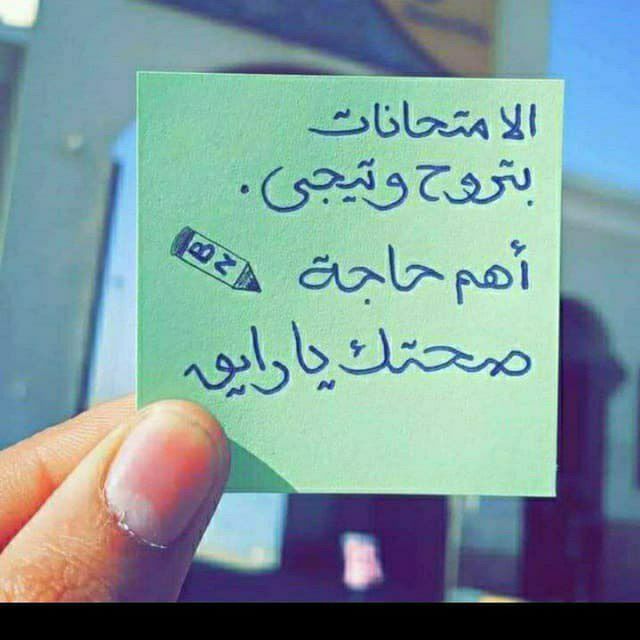 الامتحانات
بتروح وتيجى.
أهم حاجة
BN
صحتك يا رايق